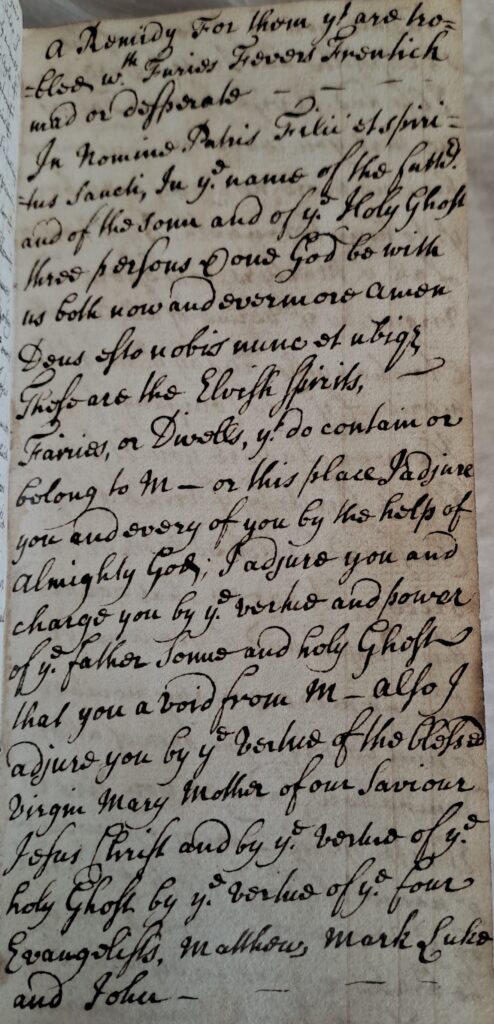 A Remidy For them yt are tro=
=bled wth Furies Fevers Frentick
mad or desperate - - -
In Nomine Patris Filii et spiri=
=tus Sancti, In ye name of the fathr
and of the sonn and of ye Holy Ghost
three persons & one God be with
us both now and evermore Amen
Deus esto nobis nunc et ubiqz
These are the Elvish spirits,
Fairies, or Divells, yt do contain or
belong to M - or this place I adjure
you and every of you by the help of
Almighty God; I adjure you and
charge you by ye vertue and power
of ye father Sonne and holy Ghost
that you a void from M - also I
adjure you by ye vertue of the blessed
Virgin Mary Mother of our Saviour
Jesus Christ and by ye vertue of ye
holy Ghost by ye vertue of ye four
Evangelists, Matthew, Mark Luke
and John - - - -